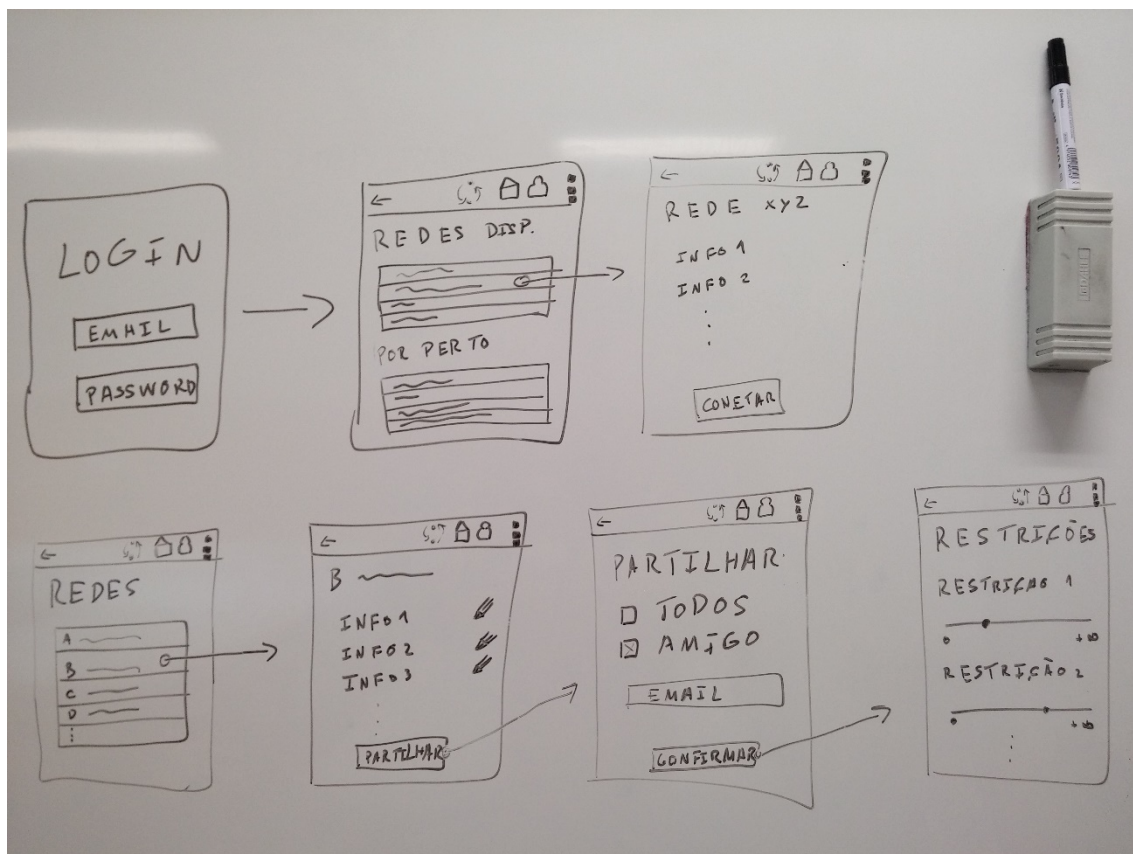 LOGIN
EMAIL
PASSWORD
REDES DISP.
POR PERTO
REDE XYZ
INFO 1
INFO 2
CONETAR
REDES
A
B
C
D
B
INFO 1
INFO 2
INFO 3
PARTILHAR
PARTILHAR
TODOS
AMIGO
EMAIL
CONFIRMAR
RESTRIÇÕES
RESTRIÇÃO 1
0 +∞
RESTRIÇÃO 2
0 +∞